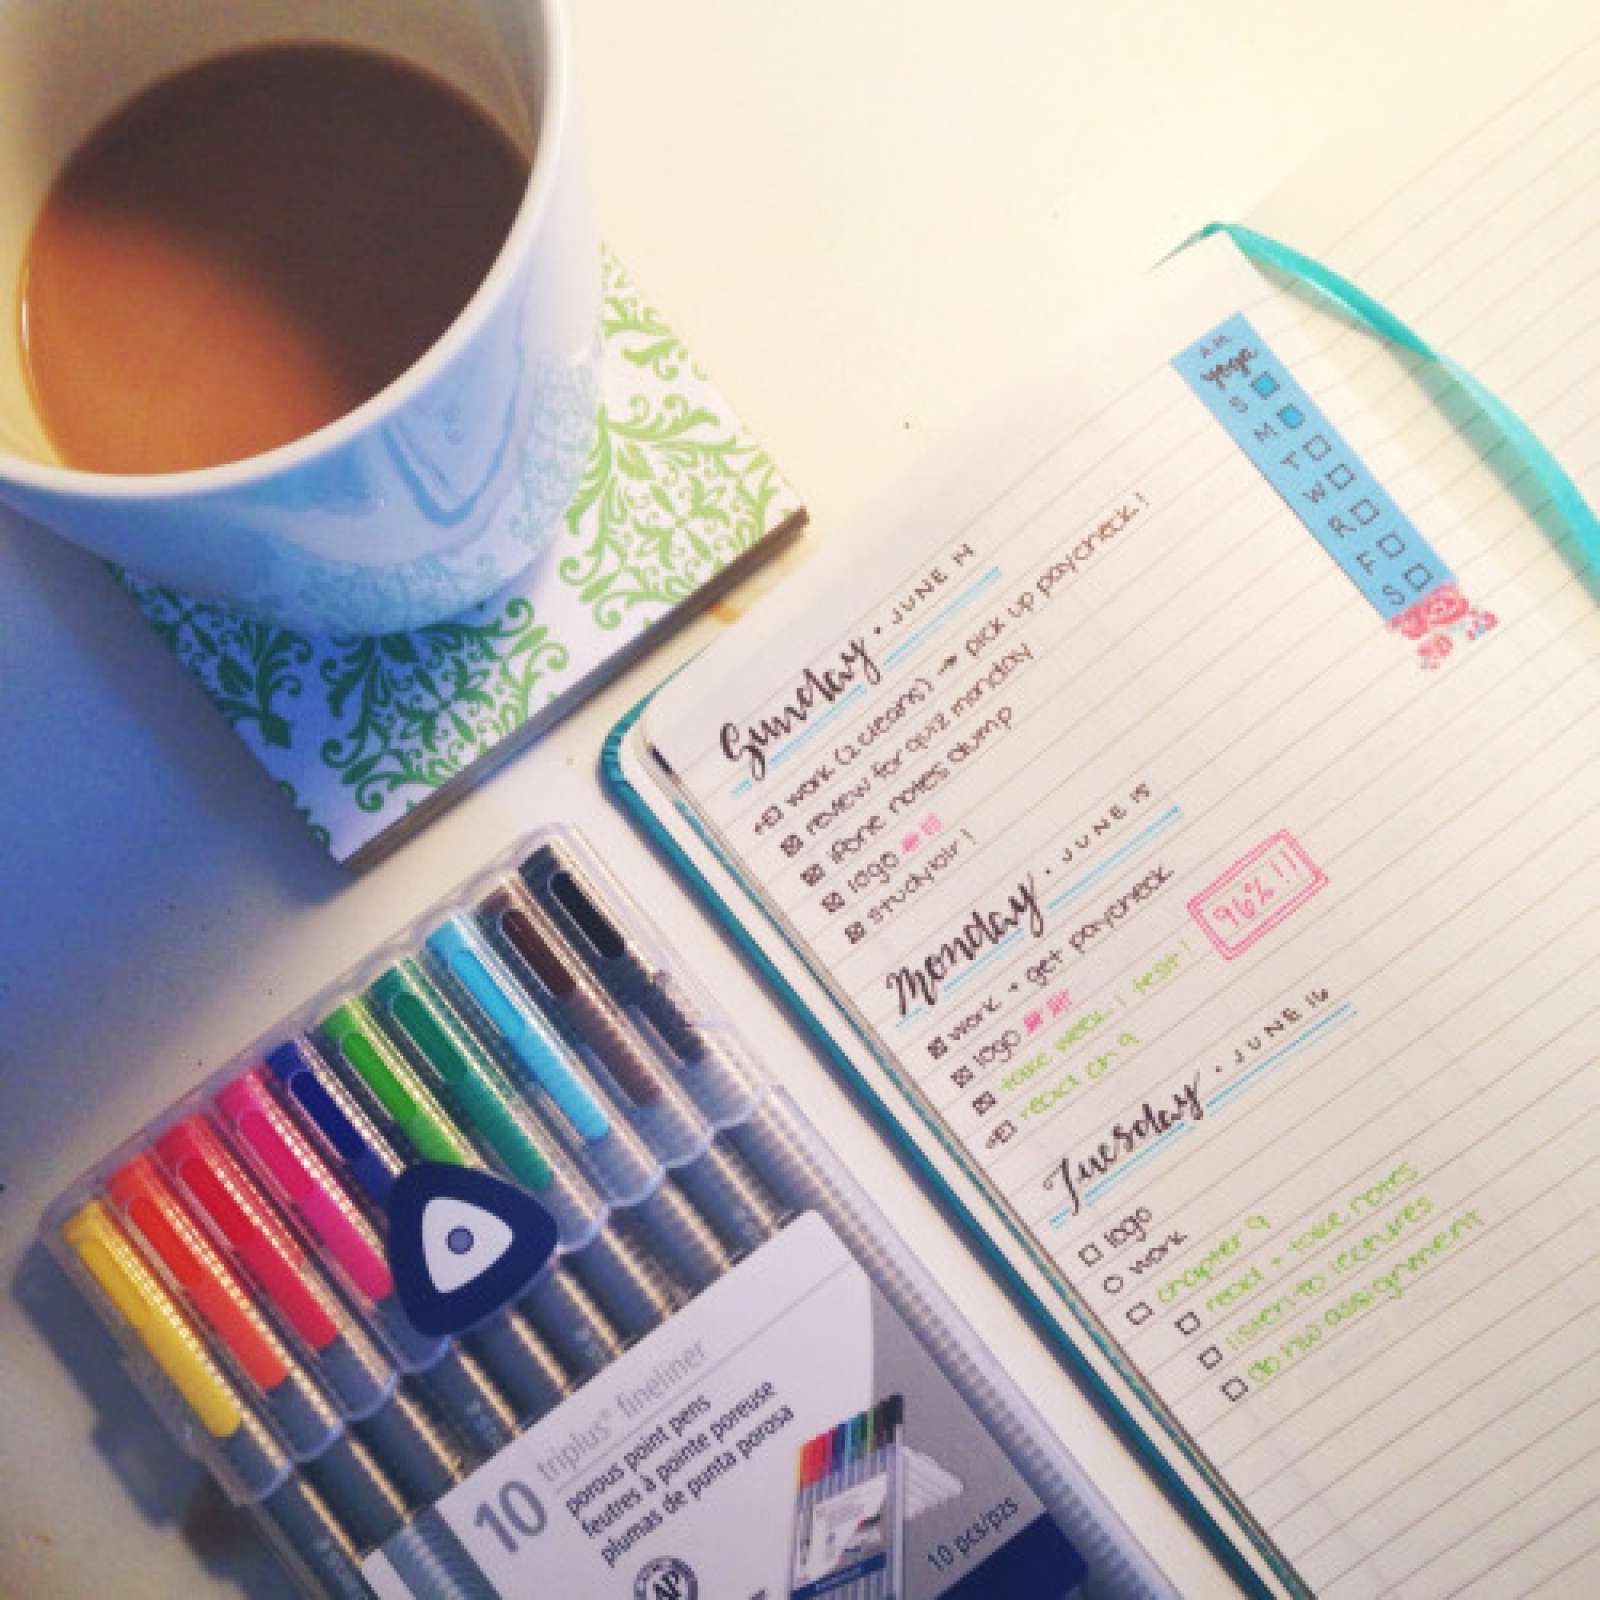 AM
yoga
S
M
T
W
R
F
S
Sunday • JUNE 14
work (2 cleans) → pick up paycheck!
review for quiz monday
iPhone notes dump
logo
study bio!
Monday • JUNE 15
work + get paycheck
logo
take week 1 test! 96%!!
read ch 9
Tuesday • JUNE 16
logo
work
chapter 9
read + take notes
listen to lectures
do hw assignment
10 triplus® fineliner
porous point pens
feutres à pointe poreuse
plumas de punta porosa
AP
10 pcs/pzs